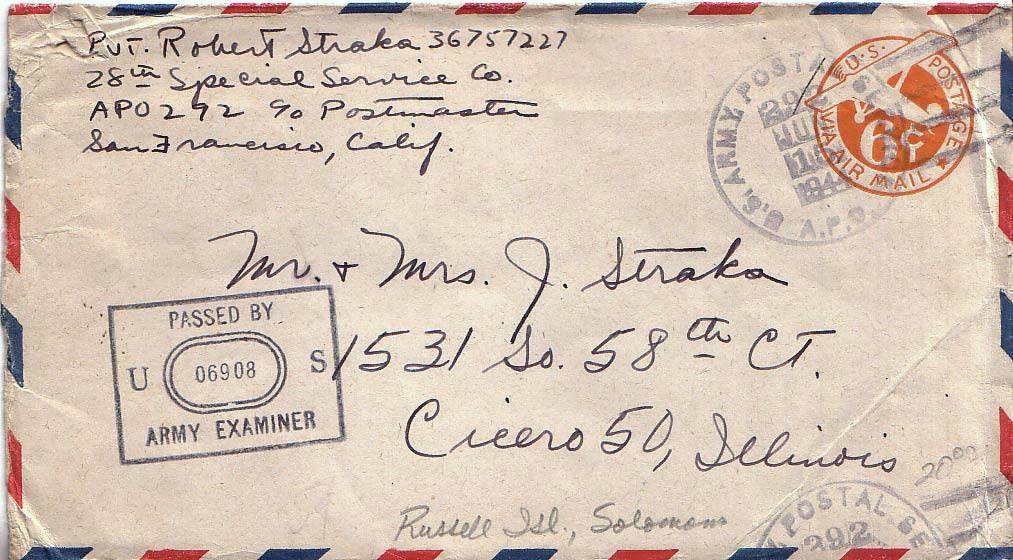 Pvt. Robert Straka 36757227
28th Special Service Co.
APO 292 c/o Postmaster
San Francisco, Calif.
U.S. POSTAGE
VIA AIR MAIL
6¢
U.S. ARMY POSTAL
292
A.P.O.
Mr. + Mrs. J. Straka
1531 So. 58th CT.
Cicero 50, Illinois
PASSED BY
U 06908 S
ARMY EXAMINER
20.00
Russell Isl., Solomons
POSTAL
292